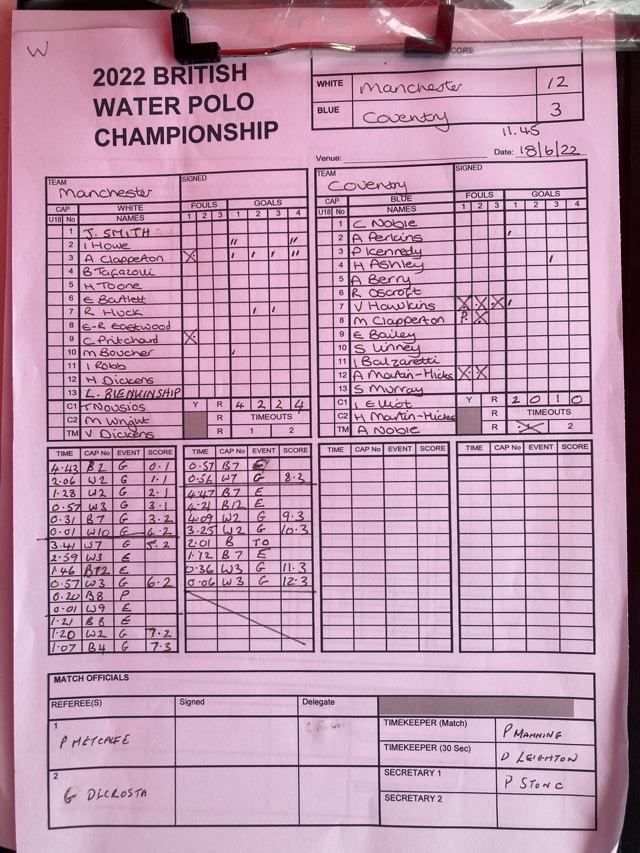 W
2022 BRITISH
WATER POLO
CHAMPIONSHIP
SCORE
WHITE Manchester 12
BLUE Coventry 3
11.45
Venue: Date: 18/6/22
TEAM Manchester SIGNED
CAP WHITE FOULS GOALS
U18 No NAMES 1 2 3 1 2 3 4
1 J. SMITH
2 I Howe
3 A Clapperton
4 B Tafazolli
5 H Toone
6 E Bartlett
7 R Huck
8 E-R Eastwood
9 C Pritchard
10 M Boucher
11 I Robb
12 H Dickens
13 L. BLENKINSHIP
C1 T Nousios Y R 4 2 2 4
C2 M Wright R TIMEOUTS
TM V Dickens R 1 2
TEAM Coventry SIGNED
CAP BLUE FOULS GOALS
U18 No NAMES 1 2 3 1 2 3 4
1 C Noble
2 A Perkins
3 P Kennedy
4 H Ashley
5 A Berry
6 R Oscroft
7 V Hawkins
8 M Clapperton P
9 E Bailey
10 S Linney
11 I Balzaretti
12 A Martin-Hicks
13 S Murray
C1 L Elliot Y R 2 0 1 0
C2 H Martin-Hicks R TIMEOUTS
TM A Noble R 2
TIME CAP No EVENT SCORE
4.43 B2 G 0.1
2.06 W2 G 1.1
1.28 W2 G 2.1
0.57 W3 G 3.1
0.31 B7 G 3.2
0.01 W10 G 4.2
3.41 W7 G 5.2
2.59 W3 E
1.46 B12 E
0.57 W3 G 6.2
0.20 B8 P
0.01 W9 E
1.21 B8 E
1.20 W2 G 7.2
1.07 B4 G 7.3
TIME CAP No EVENT SCORE
0.57 B7 E
0.56 W7 G 8.3
4.47 B7 E
4.21 B12 E
4.09 W2 G 9.3
3.25 W2 G 10.3
2.01 B TO
1.12 B7 E
0.36 W3 G 11.3
0.06 W3 G 12.3
TIME CAP No EVENT SCORE
TIME CAP No EVENT SCORE
MATCH OFFICIALS
REFEREE(S) Signed Delegate
1 P METCAFE
2 G DECROSTA
TIMEKEEPER (Match) P MANNING
TIMEKEEPER (30 Sec) D LEIGHTON
SECRETARY 1 P STONG
SECRETARY 2